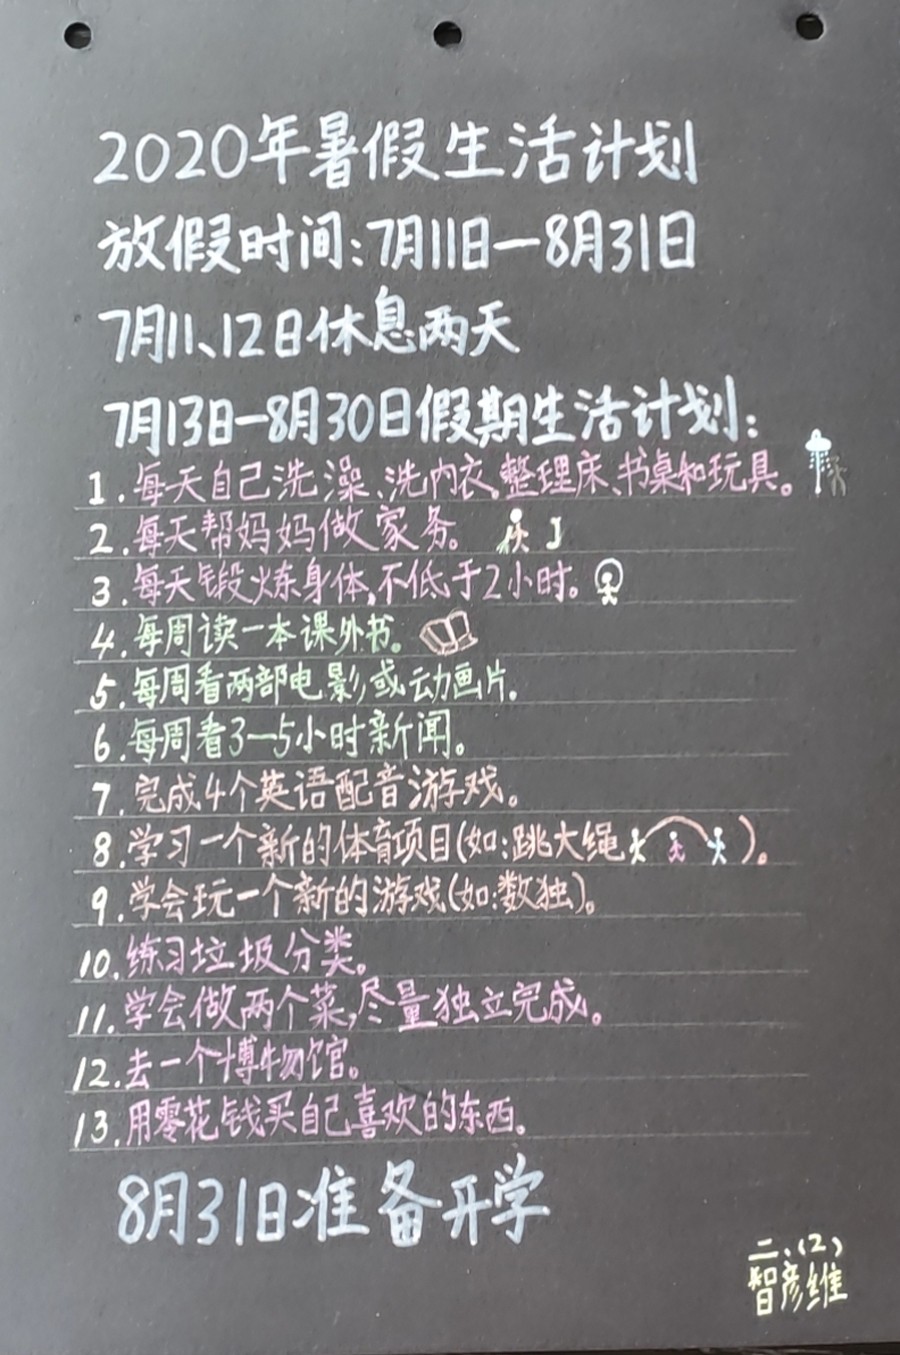 2020年暑假生活计划
放假时间:7月11日—8月31日
7月11、12日休息两天
7月13日—8月30日假期生活计划:
1.每天自己洗澡、洗内衣。整理床、书桌和玩具。
2.每天帮妈妈做家务。
3.每天锻炼身体,不低于2小时。
4.每周读一本课外书。
5.每周看两部电影或动画片.
6.每周看3—5小时新闻。
7.完成4个英语配音游戏。
8.学习一个新的体育项目(如:跳大绳)。
9.学会玩一个新的游戏(如:数独)。
10.练习垃圾分类。
11.学会做两个菜,尽量独立完成。
12.去一个博物馆。
13.用零花钱买自己喜欢的东西。
8月31日准备开学
二、(2)
智彦维